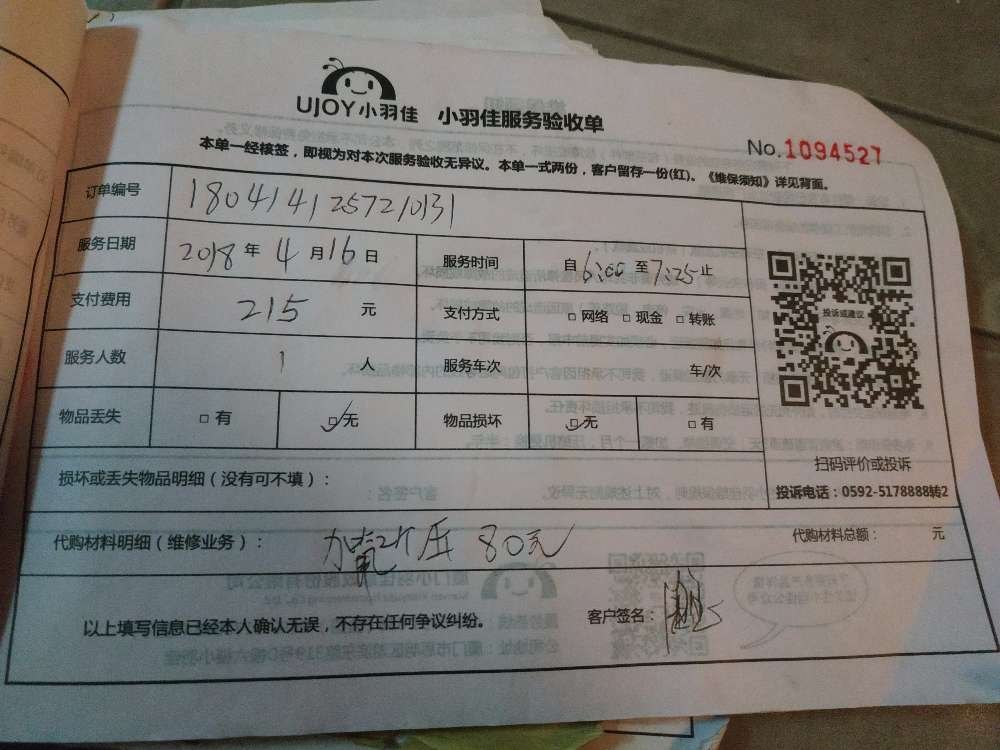 UJOY小羽佳 小羽佳服务验收单
No.1094527
本单一经核签，即视为对本次服务验收无异议。本单一式两份，客户留存一份(红)。《维保须知》详见背面。
订单编号 180414125721031
服务日期 2018年4月16日 服务时间 自6:00至7:25止
支付费用 215 元 支付方式 □网络 □现金 □转账
投诉或建议
服务人数 1 人 服务车次 车/次
物品丢失 □有 □无 物品损坏 □无 □有
扫码评价或投诉
损坏或丢失物品明细（没有可不填）：
投诉电话：0592-5178888转2
代购材料明细（维修业务）： 加氟 80元 代购材料总额： 元
以上填写信息已经本人确认无误，不存在任何争议纠纷。 客户签名：